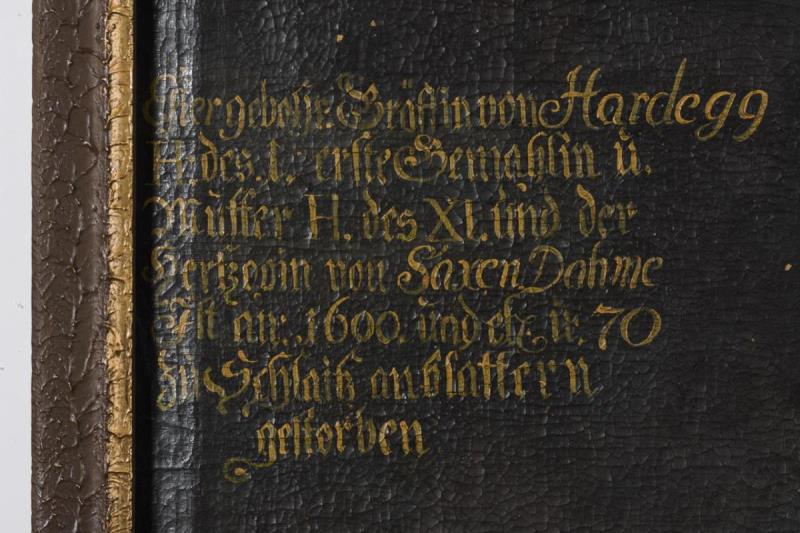 Ester gebohr. Gräffin von Hardegg
H. des. I. erste Gemahlin ù.
Mùtter H. des XI. ùnd der
Hertzogin von Saxen Dahme
Ist an: 1600. ùnd etz. ir. 70
zù Schlaitz an blattern
gestorben